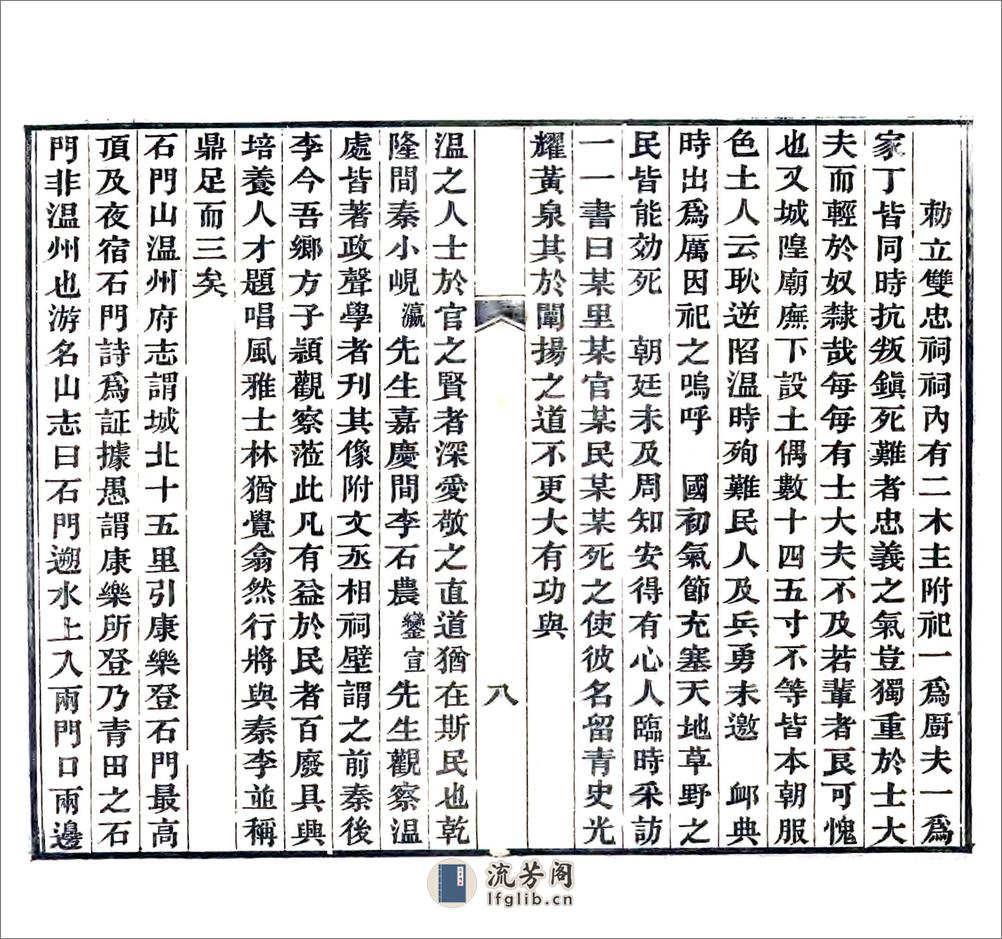 勅立雙忠祠祠內有二木主附祀一爲厨夫一爲
家丁皆同時抗叛鎭死難者忠義之氣豈獨重於士大
夫而輕於奴隸哉每每有士大夫不及若輩者良可愧
也又城隍廟廡下設土偶數十四五寸不等皆本朝服
色土人云耿逆陷温時殉難民人及兵勇未邀　卹典
時出爲厲因祀之嗚呼　國初氣節充塞天地草野之
民皆能効死　朝廷未及周知安得有心人臨時采訪
一一書曰某里某官某民某某死之使彼名留青史光
耀黃泉其於闡揚之道不更大有功與
八
温之人士於官之賢者深愛敬之直道猶在斯民也乾
隆間秦小峴瀛先生嘉慶間李石農鑾宣先生觀察温
處皆著政聲學者刊其像附文丞相祠壁謂之前秦後
李今吾鄉方子頴觀察蒞此凡有益於民者百廢具興
培養人才題唱風雅士林猶覺翕然行將與秦李並稱
鼎足而三矣
石門山温州府志謂城北十五里引康樂登石門最高
頂及夜宿石門詩爲証據愚謂康樂所登乃青田之石
門非温州也游名山志曰石門遡水上入兩門口兩邊
流芳阁
lfglib.cn